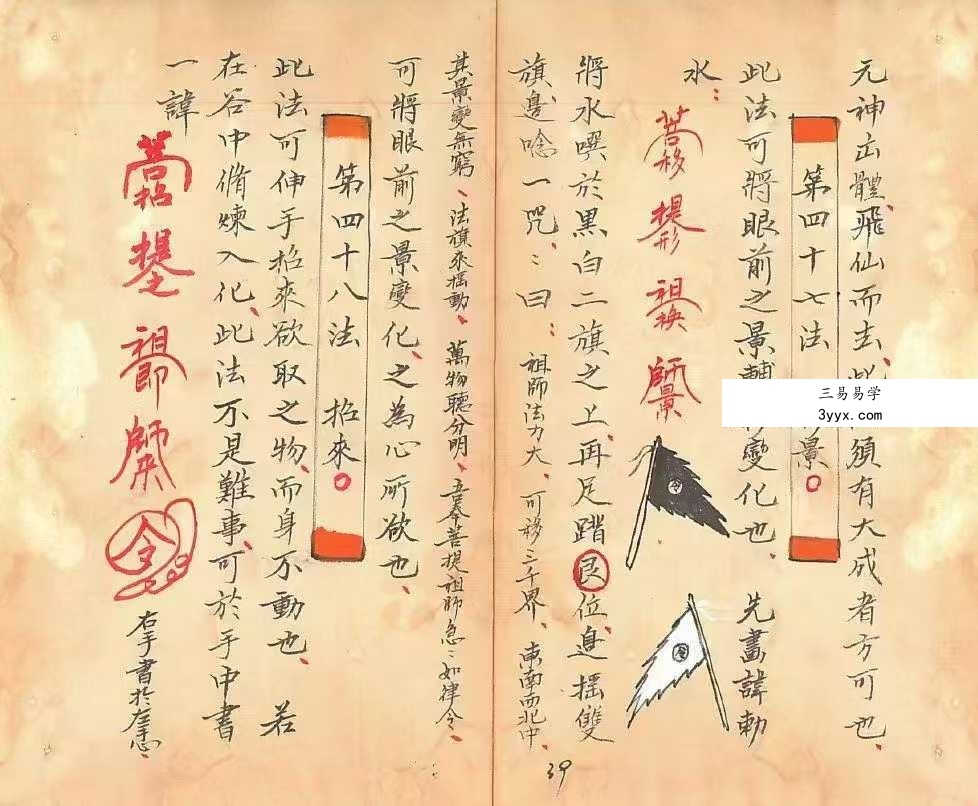 元神出體、飛仙而去、此須有大成者方可也、
第四十七法 景
此法可將眼前之景變化也、先畫諱勅
水：
菩移 提形 祖換 師景
將水噀於黑白二旗之上、再足踏艮位、邊搖雙
旗邊唸一咒、：曰：祖師法力大、可移三千界、東南西北中、
其景變無窮、法旗來搖動、萬物聽分明、吾奉菩提祖師急：如律令、
可將眼前之景變化、之為心所欲也、
第四十八法 招來
此法可伸手招來欲取之物、而身不動也、若
在谷中脩煉入化、此法不是難事、可於手中書
一諱
菩招 提 祖 師來 令
右手書於左手心、
三易易学
3yyx.com
39